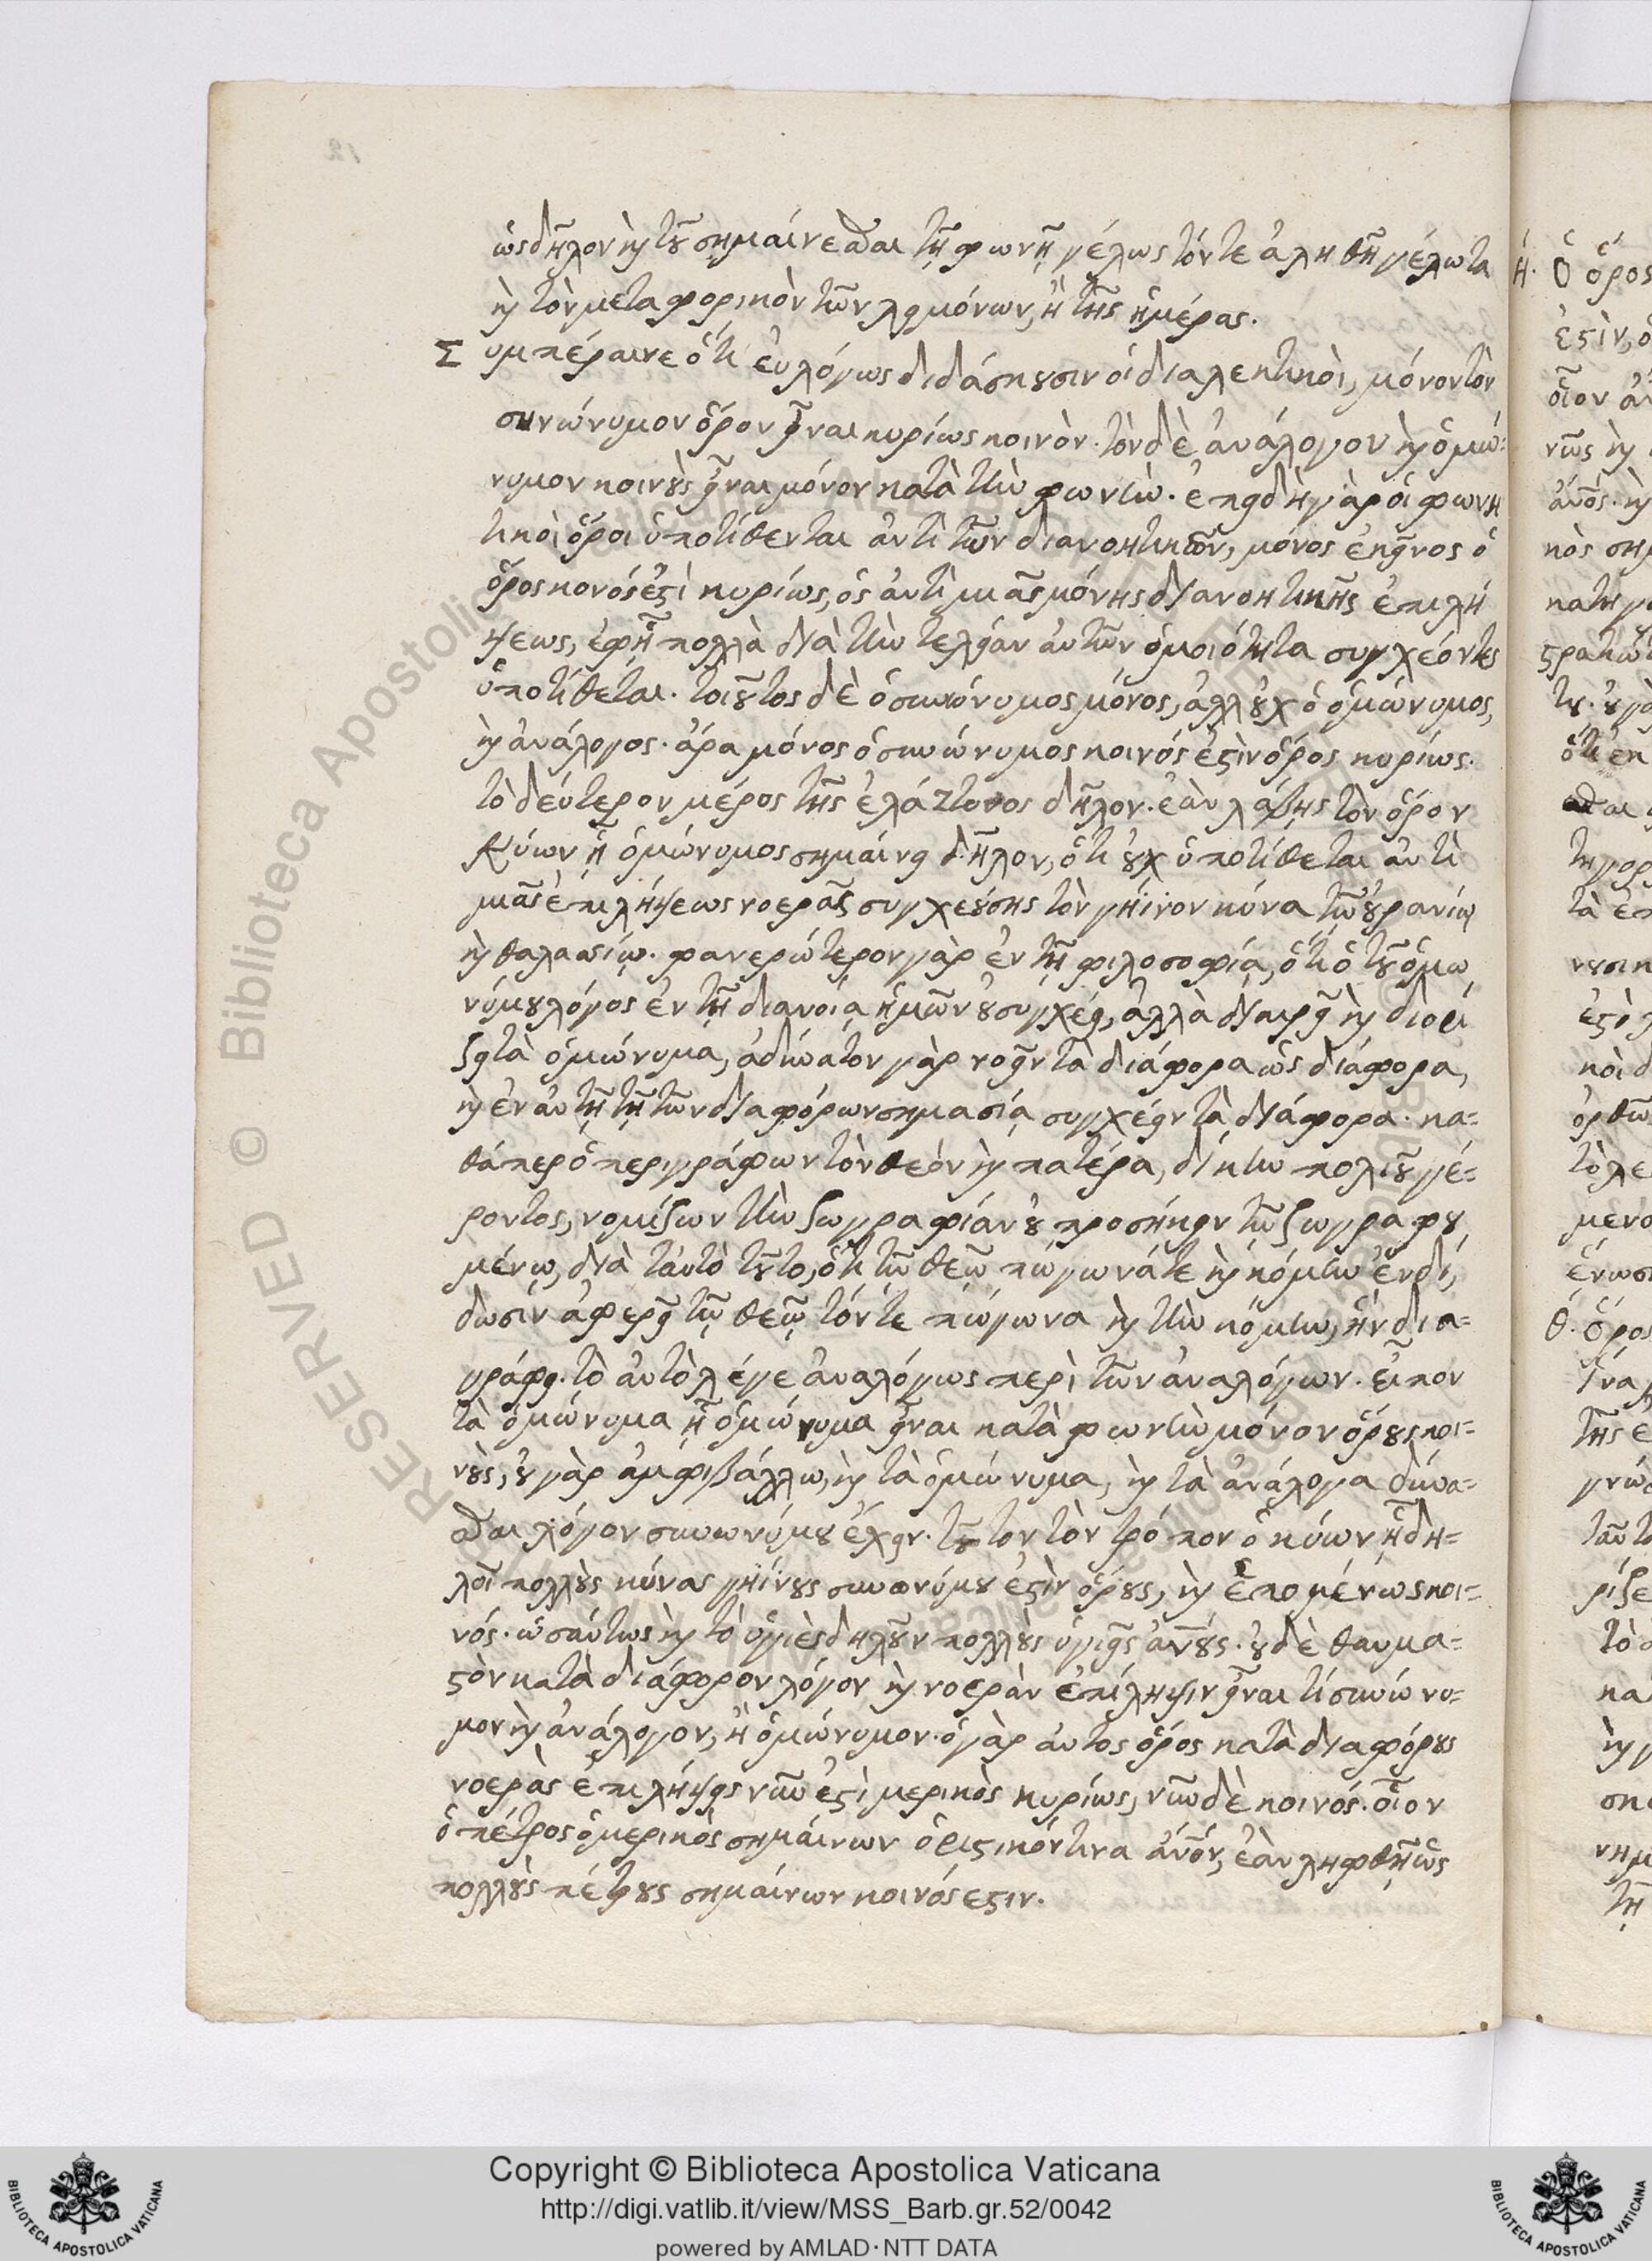 ὡς δῆλον ἢ τοῦ σημαίνεσθαι τῇ φωνῇ γέλως τόν τε ἀληθῆ γέλωτα
ἢ τὸν μεταφορικὸν τῶν λειμόνων, ἢ τῆς ἡμέρας.
Συμπέραινε ὅτι εὐλόγως διδάσκουσιν οἱ διαλεκτικοὶ, μόνον τὸν
συνώνυμον ὅρον εἶναι κυρίως κοινὸν. τὸν δὲ ἀνάλογον καὶ ὁμώ=
νυμον κοινοὺς εἶναι μόνον κατὰ τὴν φωνὴν. ἐπειδὴ γὰρ οἱ φωνη
τικοὶ ὅροι ὑποτίθενται ἀντὶ τῶν διανοητικῶν, μόνος ἐκεῖνος ὁ
ὅρος κονός ἐστὶ κυρίως, ὅς ἀντὶ μιᾶς μόνης διανοητικῆς ἐπιλή
ψεως, ἐφ ᾗ πολλὰ διὰ τὴν τελείαν αὐτῶν ὁμοιότητα συγχέοντες
ὑποτίθεται. τοιοῦτος δὲ ὁ συνώνυμος μόνος, ἀλλ οὐχ ὁ ὁμώνυμος,
καὶ ἀνάλογος. ἄρα μόνος ὁ συνώνυμος κοινός ἐστὶν ὅρος κυρίως.
τὸ δεύτερον μέρος τῆς ἐλάττονος δῆλον. ἐὰν λάβῃς τὸν ὅρον
Κύων ᾗ ὁμώνυμος σημαίνει δῆλον, ὅτι οὐχ ὑποτίθεται ἀντὶ
μιᾶς ἐπιλήψεως νοερᾶς συγχεούσης τὸν γήϊνον κύνα τῷ οὐρανίῳ
καὶ θαλασσίῳ. φανερώτερον γὰρ ἐν τῇ φιλοσοφίᾳ, ὅτι ὁ τοῦ ὁμω
νύμου λόγος ἐν τῇ διανοίᾳ ἡμῶν οὐ συγχέει, ἀλλὰ διαιρεῖ καὶ διορί
ζει τὰ ὁμώνυμα, ἀδύνατον γὰρ νοεῖν τὰ διάφορα ὡς διάφορα,
καὶ ἐν αὐτῇ τῇ τῶν διαφόρων σημασίᾳ συγχέειν τὰ διάφορα. κα=
θάπερ ὁ περιγράφων τὸν θεόν καὶ πατέρα, δίκην πολιοῦ γέ=
ροντος, νομίζων τὴν ζωγραφίαν οὐ προσήκειν τῷ ζωγραφου
μένῳ, διὰ ταὐτὸ τοῦτο, ὅτι τῷ θεῷ πώγωνά τε καὶ κόμην ἐνδί,
δωσιν ἀφερεῖ τῷ θεῷ τόν τε πώγωνα καὶ τὴν κόμην, ἣν δια=
γράφει. τὸ αὐτὸ λέγε ἀναλόγως περὶ τῶν ἀναλόγων. εἶπον
τὰ ὁμώνυμα ᾗ ὁμώνυμα εἶναι κατὰ φωνὴν μόνον ὅρους κοι=
νοὺς, οὐ γὰρ ἀμφιβάλλω, καὶ τὰ ὁμώνυμα, καὶ τὰ ἀνάλογα δύνα=
σθαι λόγον συνωνύμου ἔχειν. τοῦτον τὸν τρόπον ὁ κύων ᾗ δη=
λοῖ πολλοὺς κύνας γηίνους συνωνύμου ἐστὶν ὅρους, καὶ ἑπομένως κοι=
νός. ὡσαύτως καὶ τὸ ὑγιὲς δηλοῦν πολλοὺς ὑγιεῖς ἀν̅ους. οὐδὲ θαυμα=
στὸν κατὰ διάφορον λόγον καὶ νοερὰν ἐπίληψιν εἶναι τί συνώνυ=
μον καὶ ἀνάλογον, ἢ ὁμώνυμον. ὁ γὰρ αὐτος ὅρος κατὰ διαφόρους
νοερὰς ἐπιλήψεις νῦν ἐστὶ μερικὸς κυρίως, νῦν δὲ κοινός. οἷον
ὁ πέτρος ὁ μερικὸς σημαίνων ὁριστικόν τινα ἀν̅ον, ἐὰν ληφθῇ ὡς
πολλοὺς πέτρους σημαίνων κοινός εστιν.
Copyright © Biblioteca Apostolica Vaticana
http://digi.vatlib.it/view/MSS_Barb.gr.52/0042
powered by AMLAD·NTT DATA